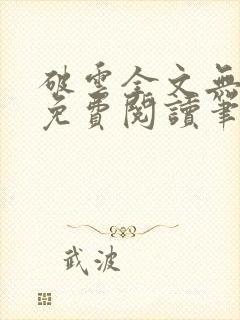 破雲全文無
免費閱讀筆
武波